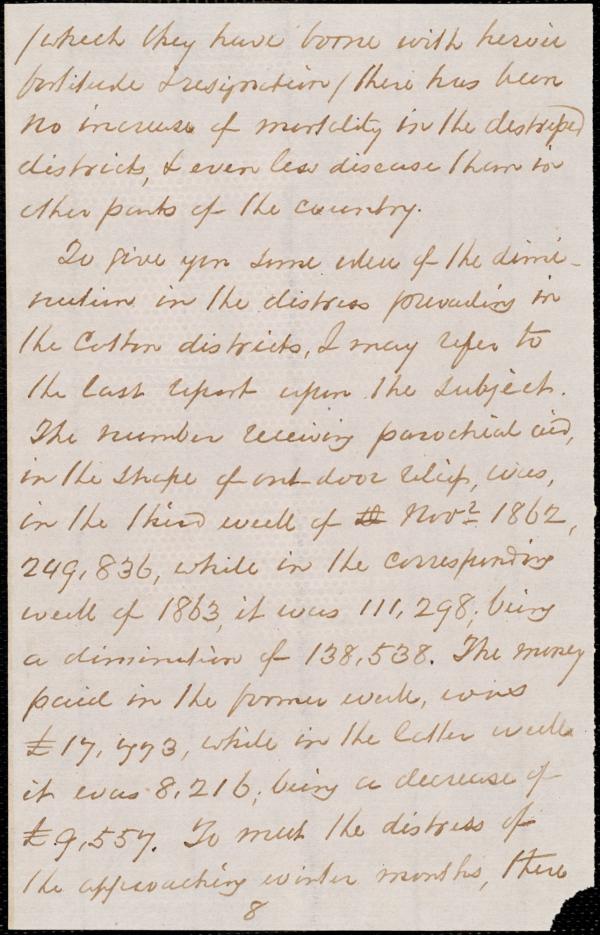 (which they have borne with heroic
fortitude & resignation) there has been
no increase of mortality in the distressed
districts, & even less disease than in
other parts of the country.
To give you some idea of the dimi-
nution in the distress prevailing in
the Cotton districts, I may refer to
the last report upon the subject.
The number receiving parochial aid,
in the shape of out-door relief, was,
in the third week of Novr 1862,
249,836, while in the corresponding
week of 1863, it was 111,298; being
a diminution of 138,538. The money
paid in the former week, was
£17,773, while in the latter week
it was 8,216; being a decrease of
£9,557. To meet the distress of
the approaching winter months, there
8